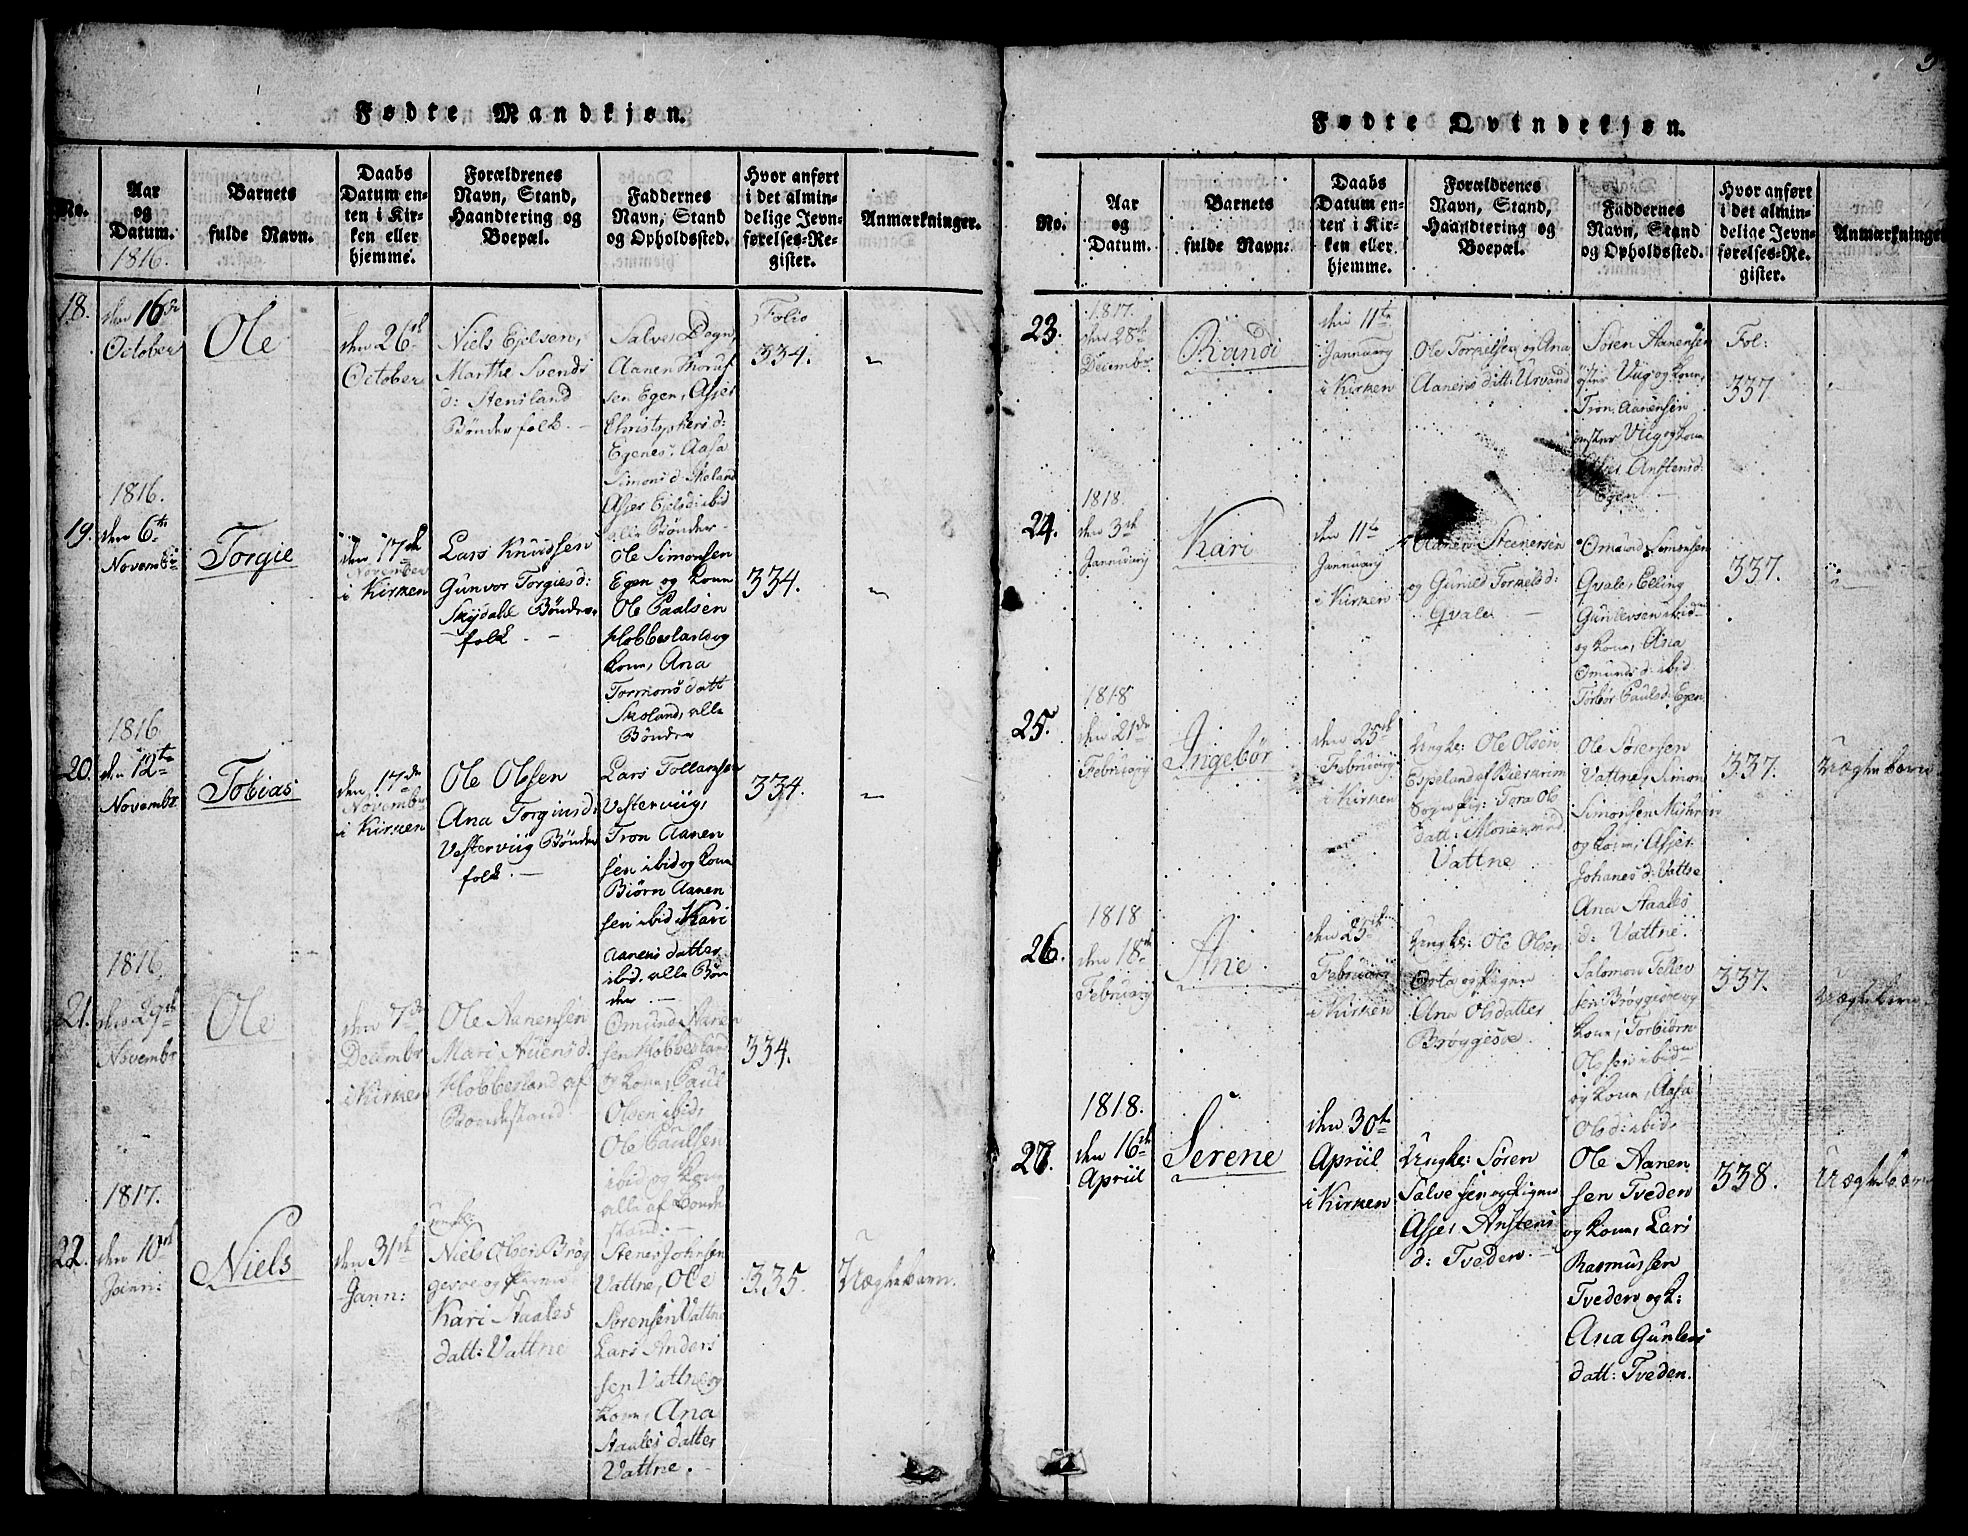 Fødte Mandkjøn.
No.
Aar
og
Datum.
1816.
Barnets
fulde Navn.
Daabs
Datum en-
ten i Kir-
ken eller
hjemme.
Forældrenes
Navn, Stand,
Haandtering og
Boepæl.
Faddernes
Navn, Stand
og Opholdssted.
Hvor anført
i det almin-
delige Jevn-
førelses-Re-
gister.
Anmærkninger.
18.
den 16de
October
Ole
den 26de
October
Niels Ejelsen,
Marthe Svends
d: Stensland
Bønderfolk.
Salve Degn,
Aanen
sen Egen, Asjer
Christophersd:
Egenes, Aasa
Simonsd.
Asjer Ejelsd: ibid
alle Bønder
Folio
334.
1816.
19.
den 6te
Novembr
Torgie
den 17de
November
i Kirken
Lars Knudssen
Gunvor Torgiesd:
Skjdahl Bønder
folk.
Ole Simonsen
Egen og kone
Ole Paalsen
Hobbesland og
kone, Ana
Tormonsdatt
Skoland, alle
Bønder
334.
1816
20.
den 12te
Novembr.
Tobias
den 17de
Novembr
i Kirken
Ole Olssen
Ana Torgiusd:
Vesterviig Bønder
folk.
Lars Tollamsen
Vesterviig,
Tron Aanen
sen ibid og kone
Biørn Aanen
sen ibid, Kari
Aanensdatter
ibid. alle Bøn
der
334.
1816.
21.
den 29de
Novembr
Ole
den 7de
Decembr
i Kirken
Ole Aanensen
Mari
Hobbesland af
Bondestand
Omund Aanen
sen Hobbesland
og kone, Paul
Olsen ibid,
Ole Paulsen
ibid og kone
alle af Bonde
stand.
334.
1817.
22.
den 10de
Jann:
Niels
den 31te
Jann:
Niels Olsen Brøg
gesve og
Kari Staales
datt: Vattne
Stener Johnsen
Vattne, Ole
Sørensen Vattne
Lars Anders
sen Vattne og
kone, Ana
Staalesdatter
Vattne.
335.
Uægtebarn.
Fødte Qvindekjøn.
No.
Aar
og
Datum.
Barnets
fulde Navn.
Daabs
Datum en-
ten i Kir-
ken eller
hjemme.
Forældrenes
Navn, Stand,
Haandtering og
Boepæl.
Faddernes
Navn, Stand
og Opholdssted.
Hvor anført
i det almin-
delige Jevn-
førelses-Re-
gister.
Anmærkninger
1817.
23.
den 28de
Decembr
Randi
den 11te
Januarg
i Kirken
Ole Torkelsen og Ana
Aanensditt: Urvand
Søren Aanensen
øster Viig og kone,
Tron Aanensen
vester Viig og kone
Anstensd.
Egen
Fol:
337
1818.
24.
den 3de
Januarg
Kari
den 11te
Januarg
i Kirken
Aanen Steenersen
og Gunild Torkelsd:
Qvale
Omund Simonsen
Qvale, Elling
Gunlevsen ibid
og kone, Ana
Omundsd: ibid
Torbor Paulsd: Egen
337.
1818
25.
den 21de
Februarg
Ingebør
den 25de
Februarg
i Kirken
Ungke: Ole Olsen
Espeland af Bieraxim
Sogn Pig: Tora Ols
datt: Monen
Vattne
Ole Sørensen
Vattne, Simon
Simonsen
og kone, Asjer
Johanesd: Vattne
Ana Staales
d: Vattne
337.
Uægtebarn
1818
26.
den 18de
Februarg
Ane
den 25de
Februarg
i Kirken
Ungke: Ole Olsen
Osta og Pigen
Ana Olsdatter
Brøggesve
Salomon Tellev
sen Brøggesve og
kone, Torbiørn
Olssen ibidm
og kone, Aasa
Olsd: ibid.
337.
Uægtebarn
1818.
27.
den 16de
Apriil
Serene
den 30te
Apriil
i Kirken
Ungke: Søren
Salvesen og Pigen
Asjer Anstens
d: Tveden.
Ole Aanen
sen Tveden
og kone, Lars
Rasmussen
Tveden og k:
Ana Gunlevs
datt: Tveden.
338.
Uægtebarn